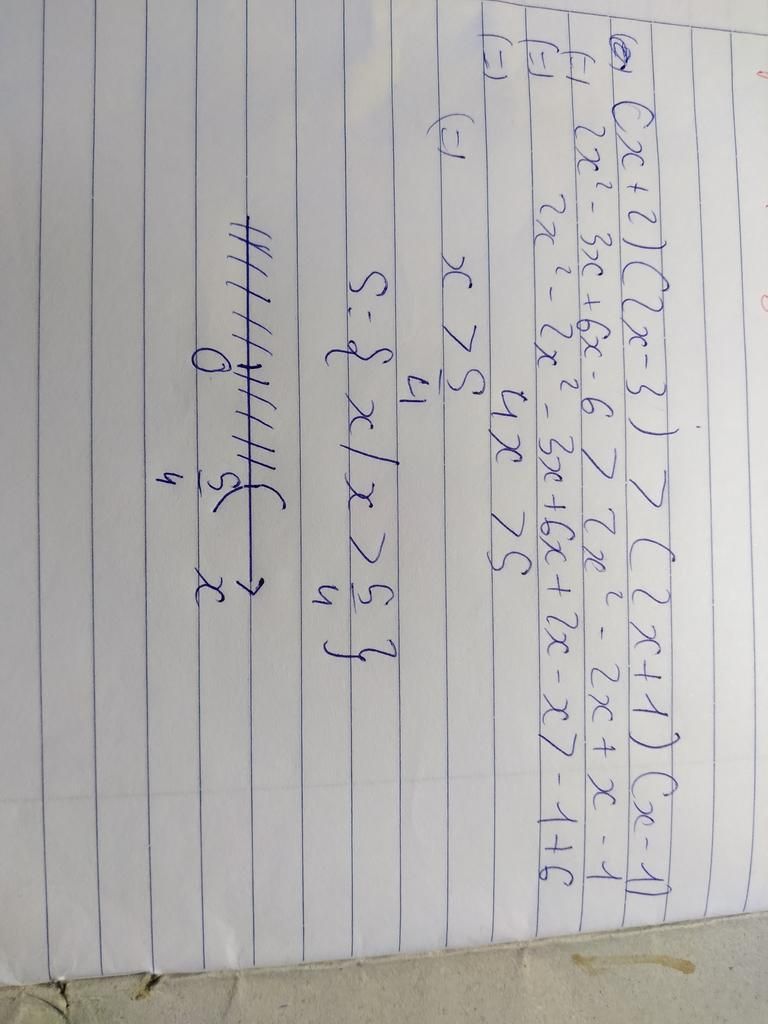 e) (x+2)(2x-3) > (2x+1)(x-1)
(=) 2x² - 3x + 6x - 6 > 2x² - 2x + x - 1
(=) 2x² - 2x² - 3x + 6x + 2x - x > -1+6
(=) 4x > 5
(=) x > 5/4
S = { x / x > 5/4 }
0 5/4 x